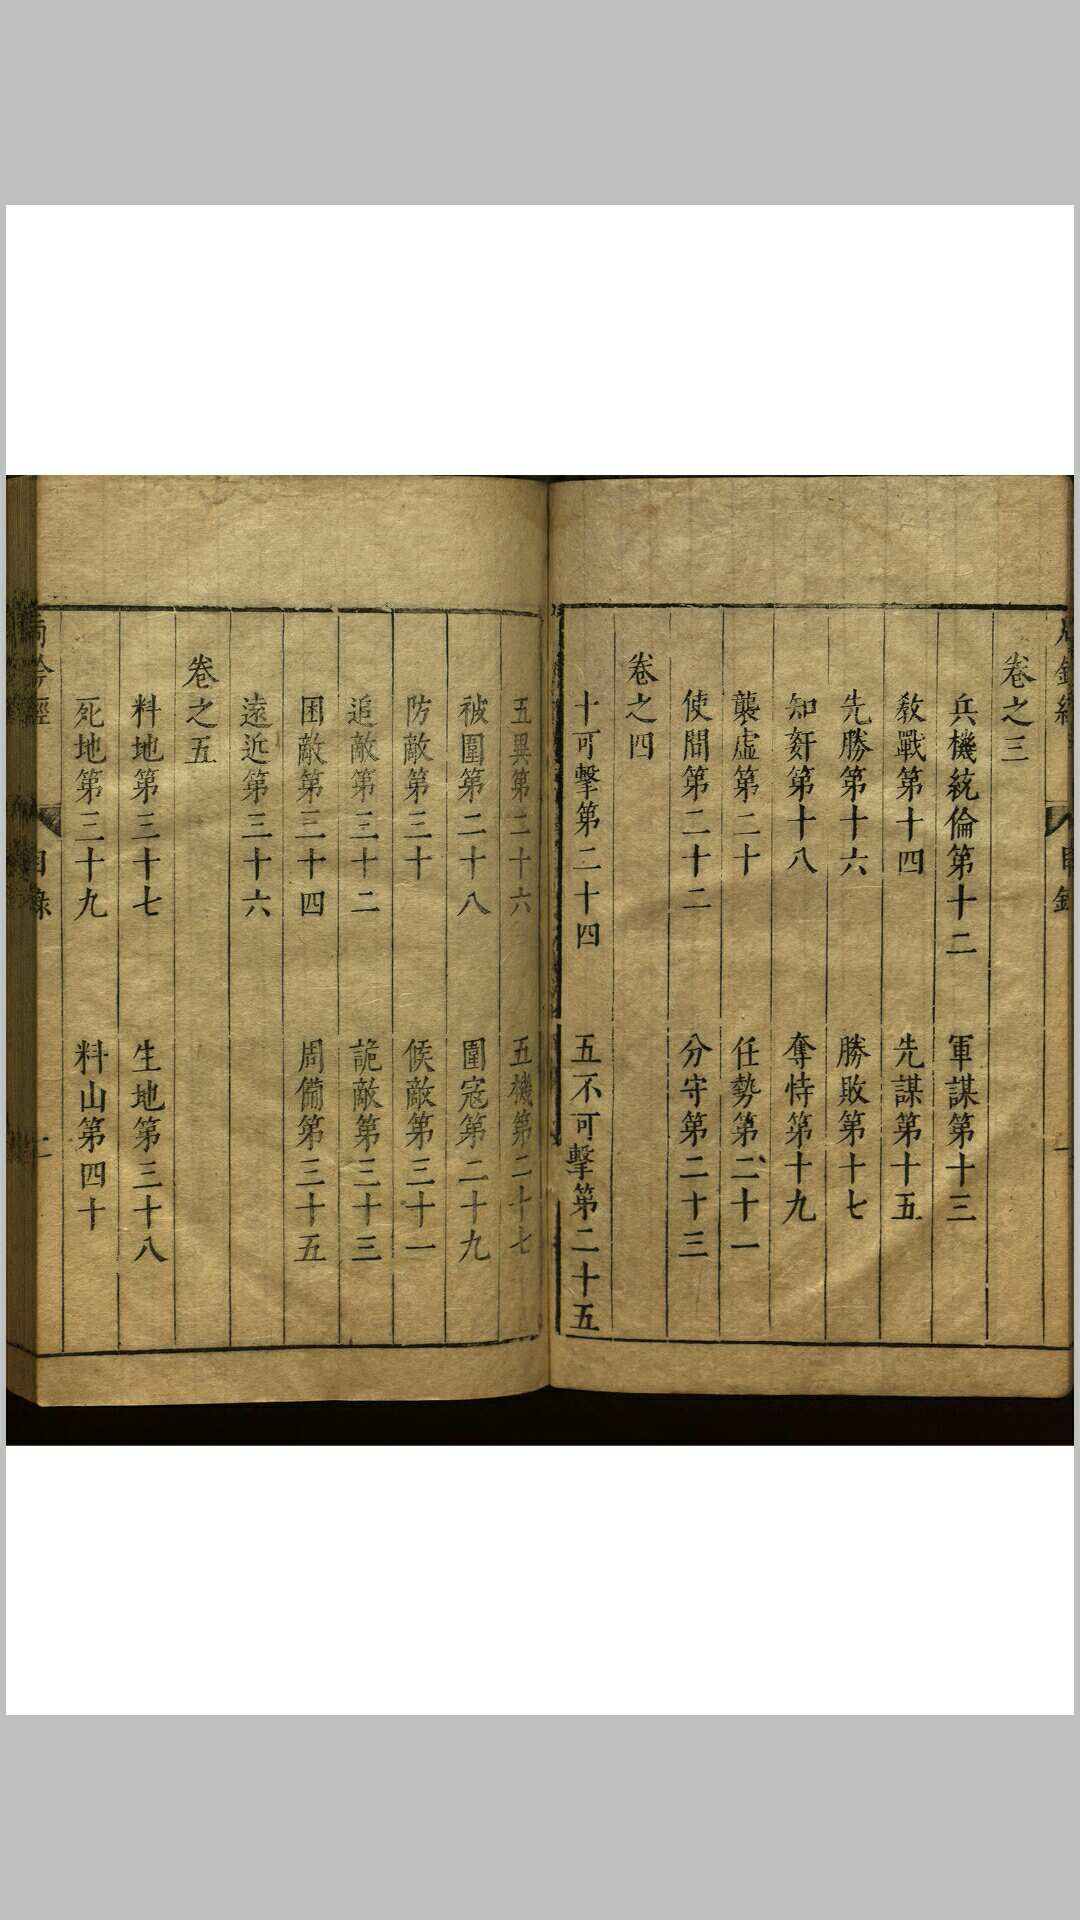 卷之三
兵機統倫第十二　軍謀第十三
教戰第十四　先謀第十五
先勝第十六　勝敗第十七
知奸第十八　奪恃第十九
襲虛第二十　任勢第二十一
使間第二十二　分守第二十三
卷之四
十可擊第二十四　五不可擊第二十五
五異第二十六　五機第二十七
被圍第二十八　圍寇第二十九
防敵第三十　候敵第三十一
追敵第三十二　詭敵第三十三
困敵第三十四　周備第三十五
遠近第三十六
卷之五
料地第三十七　生地第三十八
死地第三十九　料山第四十
目錄